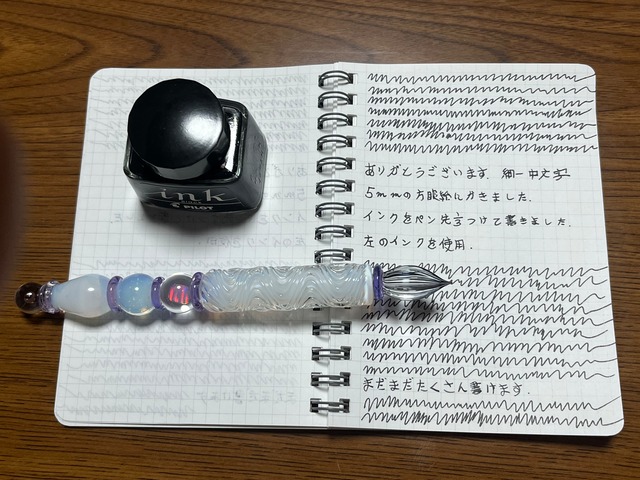 ink
PILOT
ありがとうございます. 細〜中文字
5mmの方眼紙にかきました.
インクをペン先1/3つけて書きました.
左のインクを使用.
まだまだたくさん書けます.